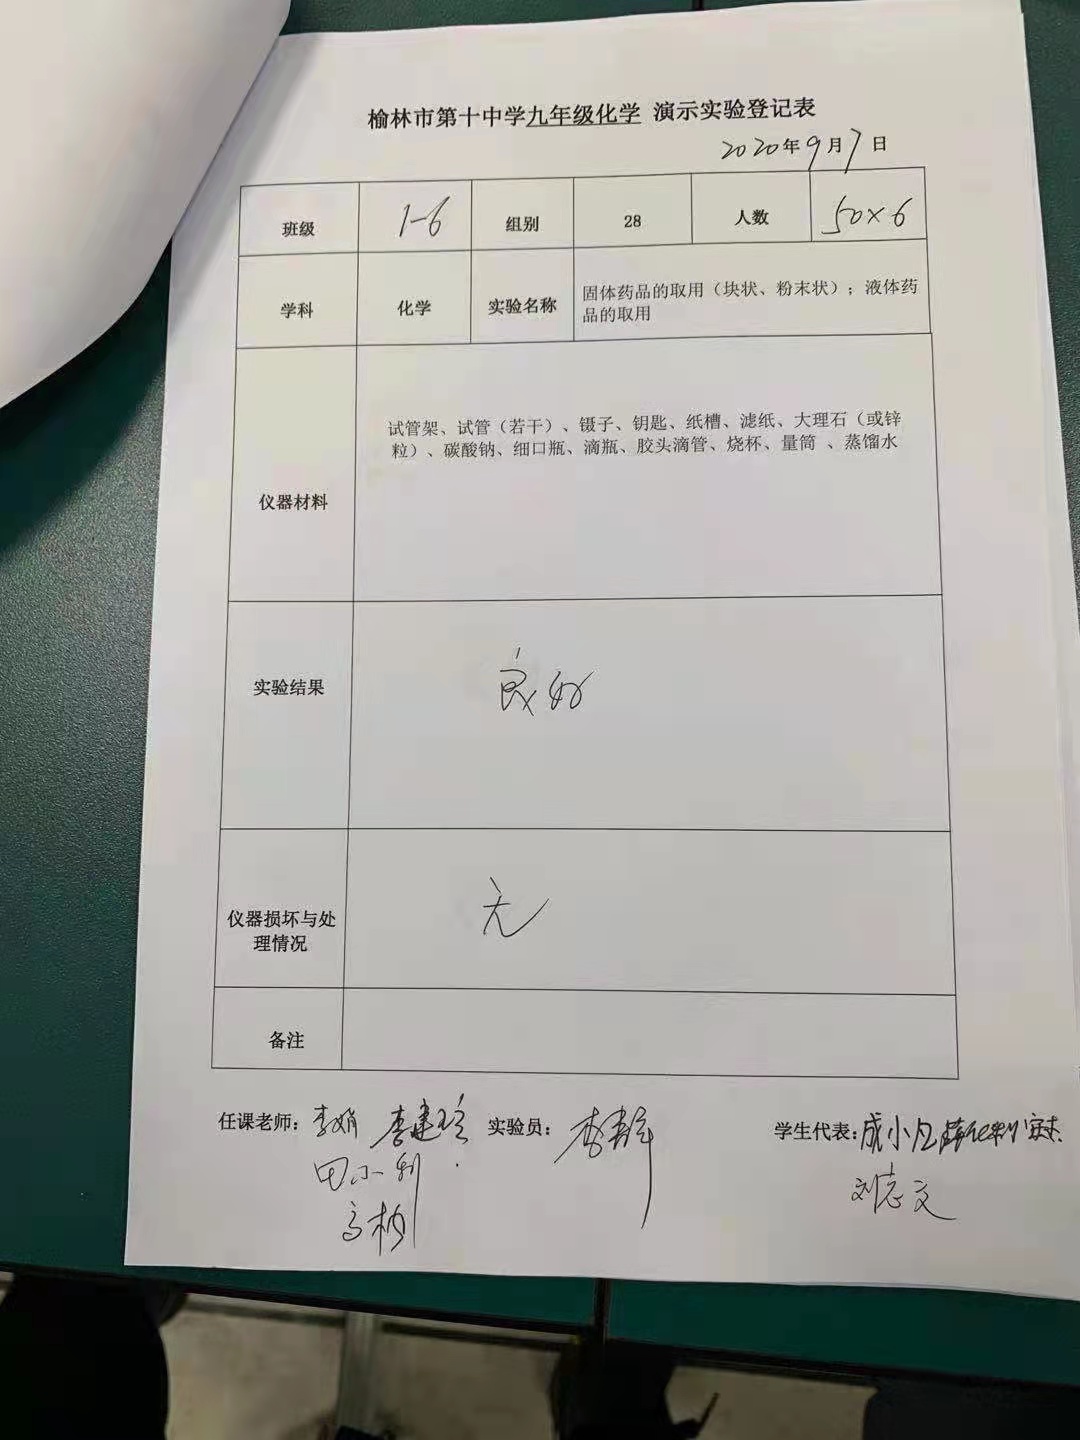 榆林市第十中学九年级化学 演示实验登记表
2020年9月7日
班级 1-6 组别 28 人数 50×6
学科 化学 实验名称 固体药品的取用（块状、粉末状）；液体药
品的取用
仪器材料
试管架、试管（若干）、镊子、钥匙、纸槽、滤纸、大理石（或锌
粒）、碳酸钠、细口瓶、滴瓶、胶头滴管、烧杯、量筒 、蒸馏水
实验结果 良好
仪器损坏与处
理情况
无
备注
任课老师：李娟 李建 实验员： 学生代表：成小
田小利
高楠
刘志文